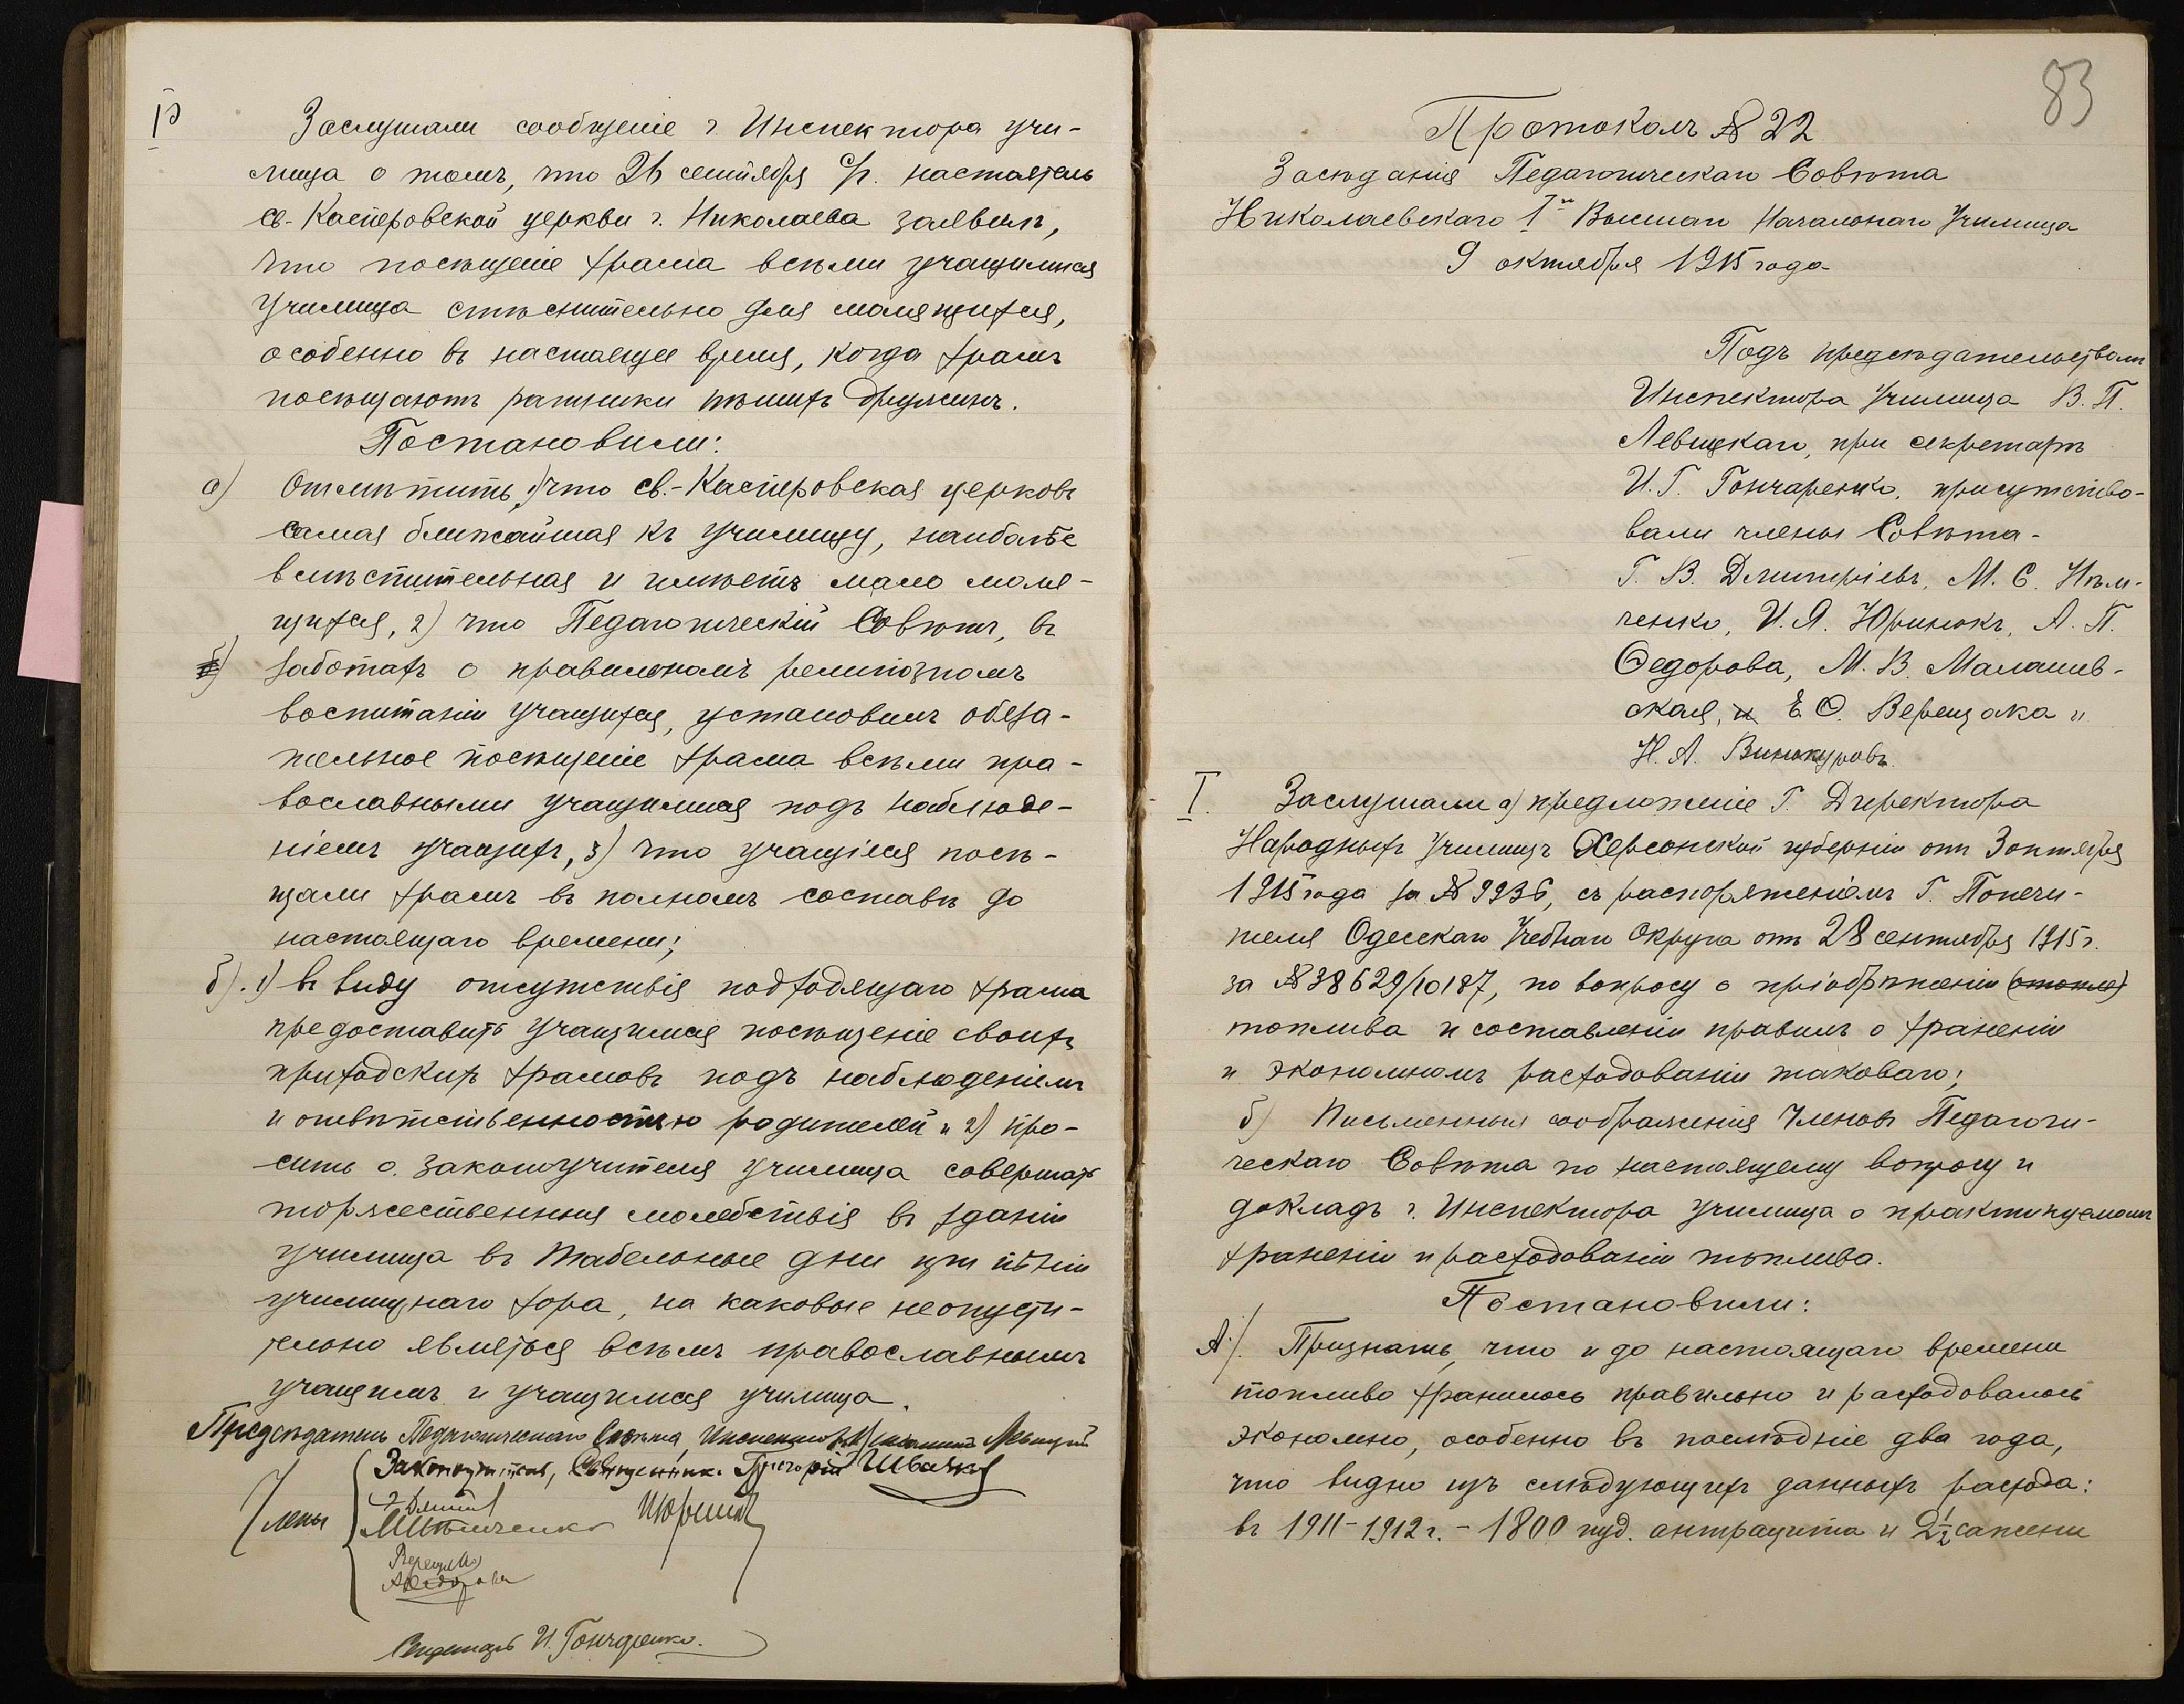 Заслушали сообщеніе г. Инспектора учи-
лища о томъ, что 26 сентября с/г. настоятель
св.-Касперовской церкви г. Николаева заявилъ,
что посѣщеніе храма всѣми учащимися
училища стѣснительно для молящихся,
особенно въ настоящее время, когда храмъ
посѣщаютъ ратники пѣшихъ дружинъ.
Постановили:
а) Отмѣтить, 1) что св.-Касперовская церковь
самая ближайшая къ училищу, наиболѣе
вмѣстительная и имѣетъ мало моля-
щихся, 2) что Педагогическій Совѣтъ, въ
заботахъ о правильномъ религіозномъ
воспитаніи учащихся, установилъ обяза-
тельное посѣщеніе храма всѣми пра-
вославными учащимися подъ наблюде-
ніемъ учащихъ, 3) что учащіеся посѣ-
щали храмъ въ полномъ составѣ до
настоящаго времени;
б). 1) въ виду отсутствія подходящаго храма
предоставить учащимся посѣщеніе своихъ
приходскихъ храмовъ подъ наблюденіемъ
и отвѣтственностью родителей и 2) про-
сить о. законоучителя училища совершать
торжественныя молебствія въ зданіи
училища въ табельные дни при пѣніи
училищнаго хора, на каковые неопусти-
тельно являться всѣмъ православнымъ
учащимъ и учащимся училища.
Предсѣдатель Педагогическаго Совѣта, Инспекторъ Левицкій
Законоучитель, Священникъ Григорій Швачко
Члены
М Нѣмченко ИЮринокъ
Верещака
АѲедорова
Секретарь И. Гончаренко.
83
Протоколъ № 22
Засѣданія Педагогическаго Совѣта
Николаевскаго 1го Высшаго Начальнаго Училища
9 октября 1915 года
Подъ предсѣдательствомъ
Инспектора Училища В. П.
Левицкаго, при секретарѣ
И. Г. Гончаренко, присутство-
вали члены Совѣта -
Г. В. Дмитріевъ, М. С. Нѣм-
ченко, И. Я. Юринокъ, А. П.
Ѳедорова, М. В. Малашев-
ская, и Е. О. Верещака и
Н. А. Винокуровъ.
I. Заслушали а) предложеніе Г. Директора
Народныхъ Училищъ Херсонской губерніи отъ 3 октября
1915 года за № 9936, съ распоряженіемъ Г. Попечи-
теля Одесскаго Учебнаго Округа отъ 28 сентября 1915 г.
за № 38629/10187, по вопросу о пріобрѣтеніи (отопле)
топлива и составленіи правилъ о храненіи
и экономномъ расходованіи таковаго;
б) Письменныя соображенія Членовъ Педагоги-
ческаго Совѣта по настоящему вопросу и
докладъ г. Инспектора училища о практикуемомъ
храненіи и расходованіи топлива.
Постановили:
А). Признать, что и до настоящаго времени
топливо хранилось правильно и расходовалось
экономно, особенно въ послѣдніе два года,
что видно изъ слѣдующихъ данныхъ расхода:
въ 1911-1912 г. - 1800 пуд. антрацита и 2 1/2 сажени